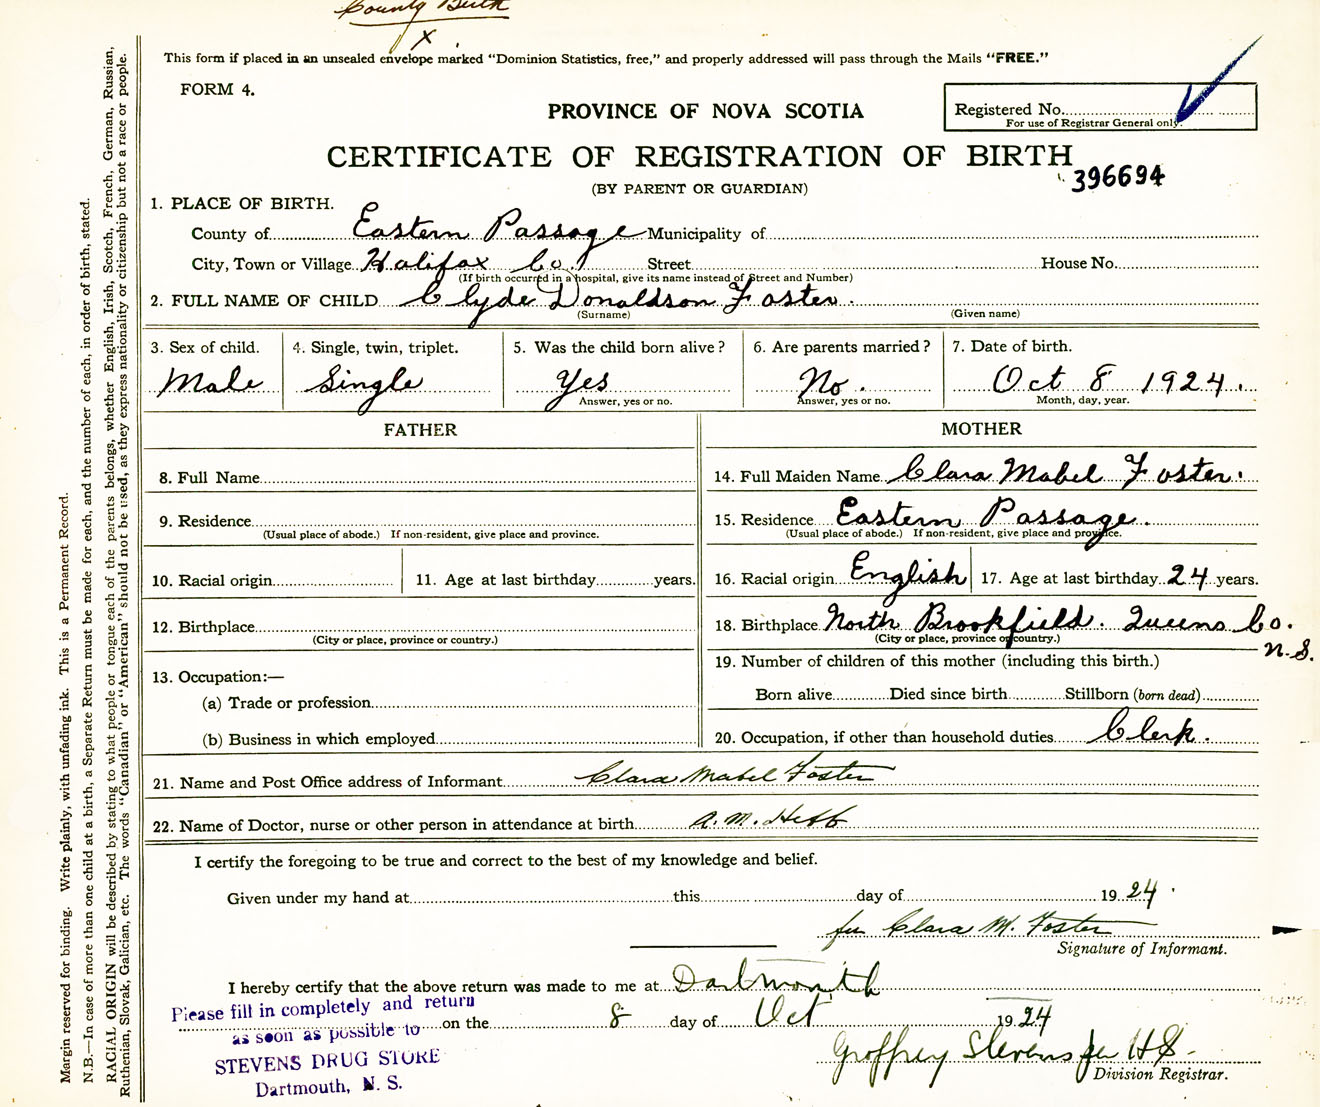 County Birth
X
This form if placed in an unsealed envelope marked "Dominion Statistics, free," and properly addressed will pass through the Mails "FREE."
FORM 4.
PROVINCE OF NOVA SCOTIA
Registered No.
For use of Registrar General only.
CERTIFICATE OF REGISTRATION OF BIRTH
396694
(BY PARENT OR GUARDIAN)
1. PLACE OF BIRTH.
County of Eastern Passage Municipality of
City, Town or Village Halifax Co. Street House No.
(If birth occurred in a hospital, give its name instead of Street and Number)
2. FULL NAME OF CHILD Clyde Donaldson Foster.
(Surname) (Given name)
3. Sex of child. 4. Single, twin, triplet. 5. Was the child born alive? 6. Are parents married? 7. Date of birth.
Male Single Yes No. Oct 8 1924.
Answer, yes or no. Answer, yes or no. Month, day, year.
FATHER
8. Full Name
9. Residence
(Usual place of abode.) If non-resident, give place and province.
10. Racial origin 11. Age at last birthday years.
12. Birthplace
(City or place, province or country.)
13. Occupation:—
(a) Trade or profession
(b) Business in which employed
MOTHER
14. Full Maiden Name Clara Mabel Foster.
15. Residence Eastern Passage.
(Usual place of abode.) If non-resident, give place and province.
16. Racial origin English 17. Age at last birthday 24 years.
18. Birthplace North Brookfield. Queens Co.
N.S.
(City or place, province or country.)
19. Number of children of this mother (including this birth.)
Born alive Died since birth Stillborn (born dead)
20. Occupation, if other than household duties Clerk.
21. Name and Post Office address of Informant Clara Mabel Foster
22. Name of Doctor, nurse or other person in attendance at birth A. M. Hebb
I certify the foregoing to be true and correct to the best of my knowledge and belief.
Given under my hand at this day of 19 24
per Clara M. Foster
Signature of Informant.
I hereby certify that the above return was made to me at Dartmouth
on the 8 day of Oct 19 24
Groffrey Stevens per HS
Division Registrar.
Please fill in completely and return
as soon as possible to
STEVENS DRUG STORE
Dartmouth, N. S.
Margin reserved for binding. Write plainly, with unfading ink. This is a Permanent Record.
N.B.—In case of more than one child at a birth, a Separate Return must be made for each, and the number of each, in order of birth, stated.
RACIAL ORIGIN will be described by stating to what people or tongue each of the parents belongs, whether English, Irish, Scotch, French, German, Russian,
Ruthenian, Slovak, Galician, etc. The words "Canadian" or "American" should not be used, as they express nationality or citizenship but not a race or people.